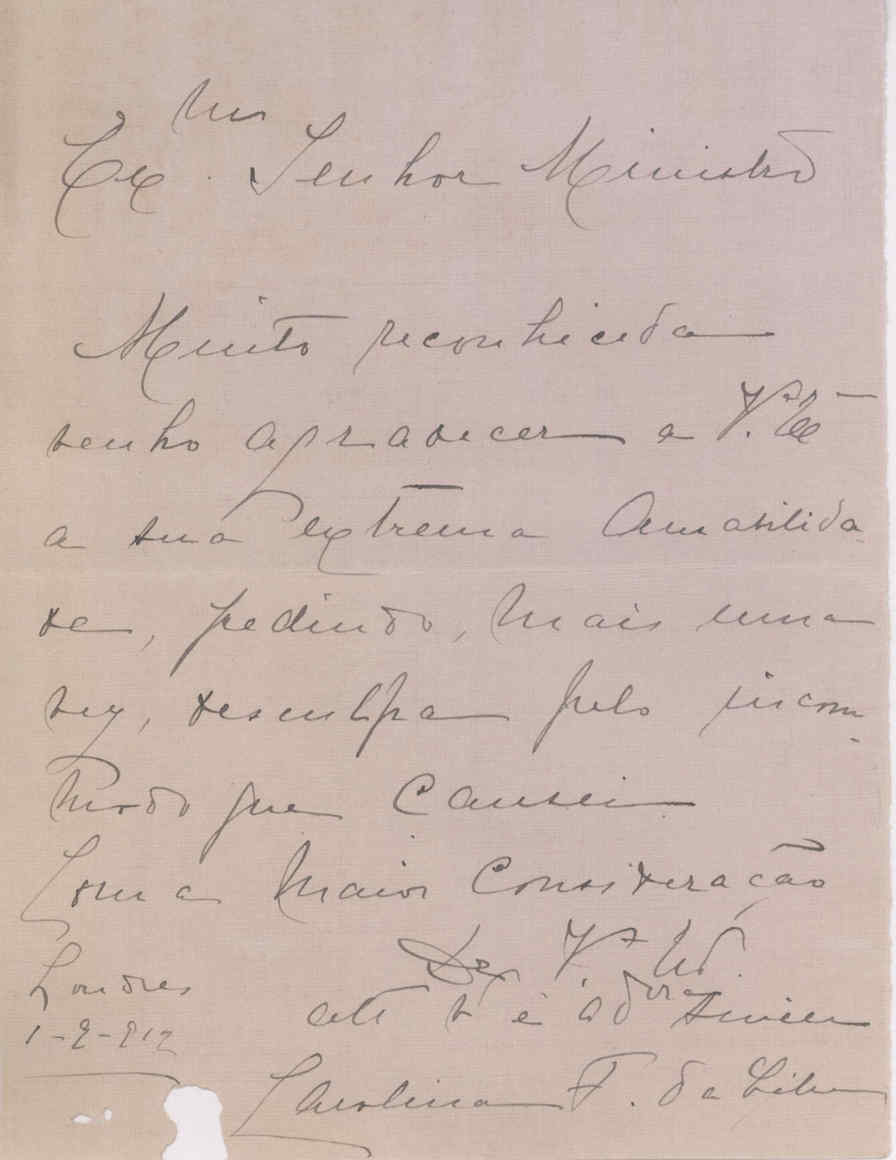 Exmo Senhor Ministro
Muito reconhecida
venho agradecer a V.ª Ex
a sua extrema Amabilida
de, pedindo, mais uma
vez, desculpa pelo incom-
modo que Causei
Com a Maior Consideração
De V.ª
Londres
1-9-912
Carolina F. da Silva